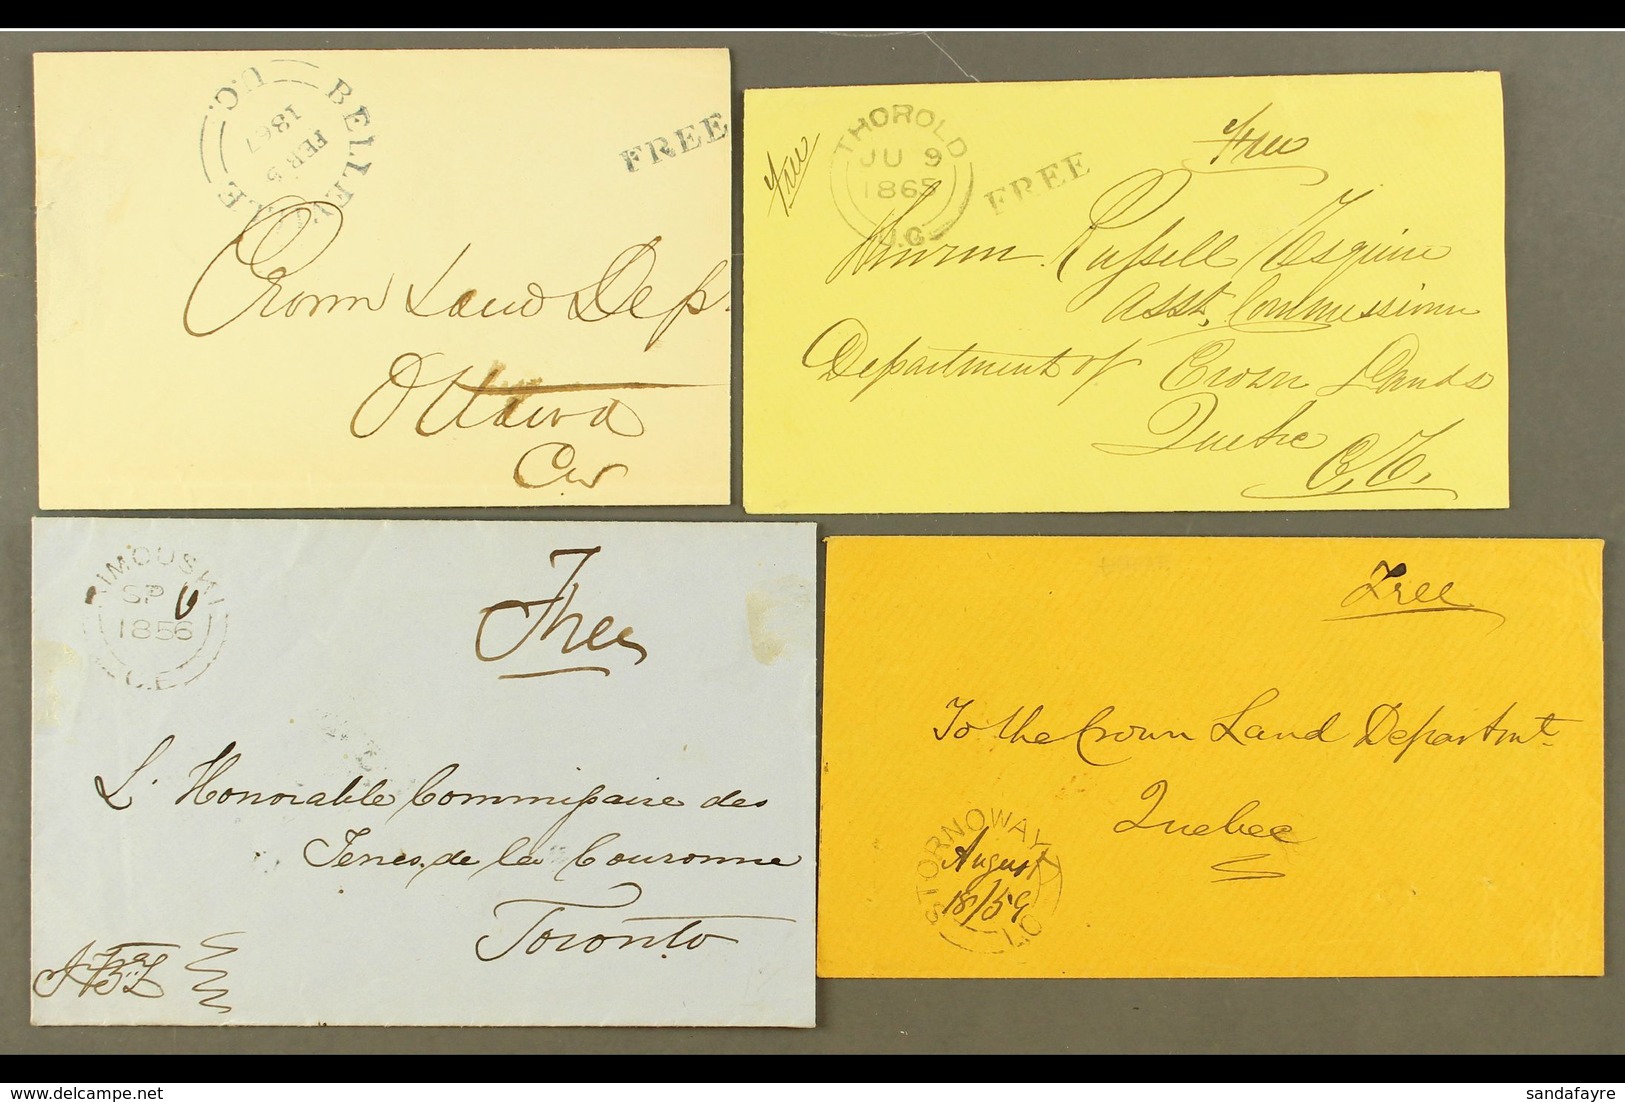 BELLEVILLE
FEB 5
1867
U.C.
FREE
Crown Land Dep.
Ottawa
CW
Free
THOROLD
JU 9
1865
U.C.
FREE
Free
Russell Esquire
Asst. Commissioner
Department of Crown Lands
Quebec
C.E.
RIMOUSKI
SP 6
1856
C.E.
Free
L'Honorable Commissaire des
Terres de la Couronne
Toronto
STORNOWAY
August
18/59
L.C
Free
To the Crown Land Departmt.
Quebec
sandafayre